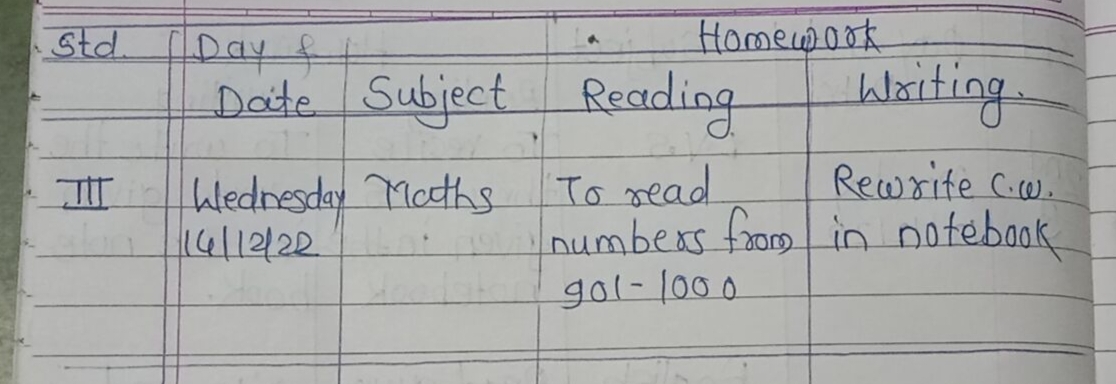 Std. Day & Homework
Date Subject Reading Writing.
III Wednesday Maths To read Rewrite C.W.
14/12/22 numbers from in notebook
901-1000